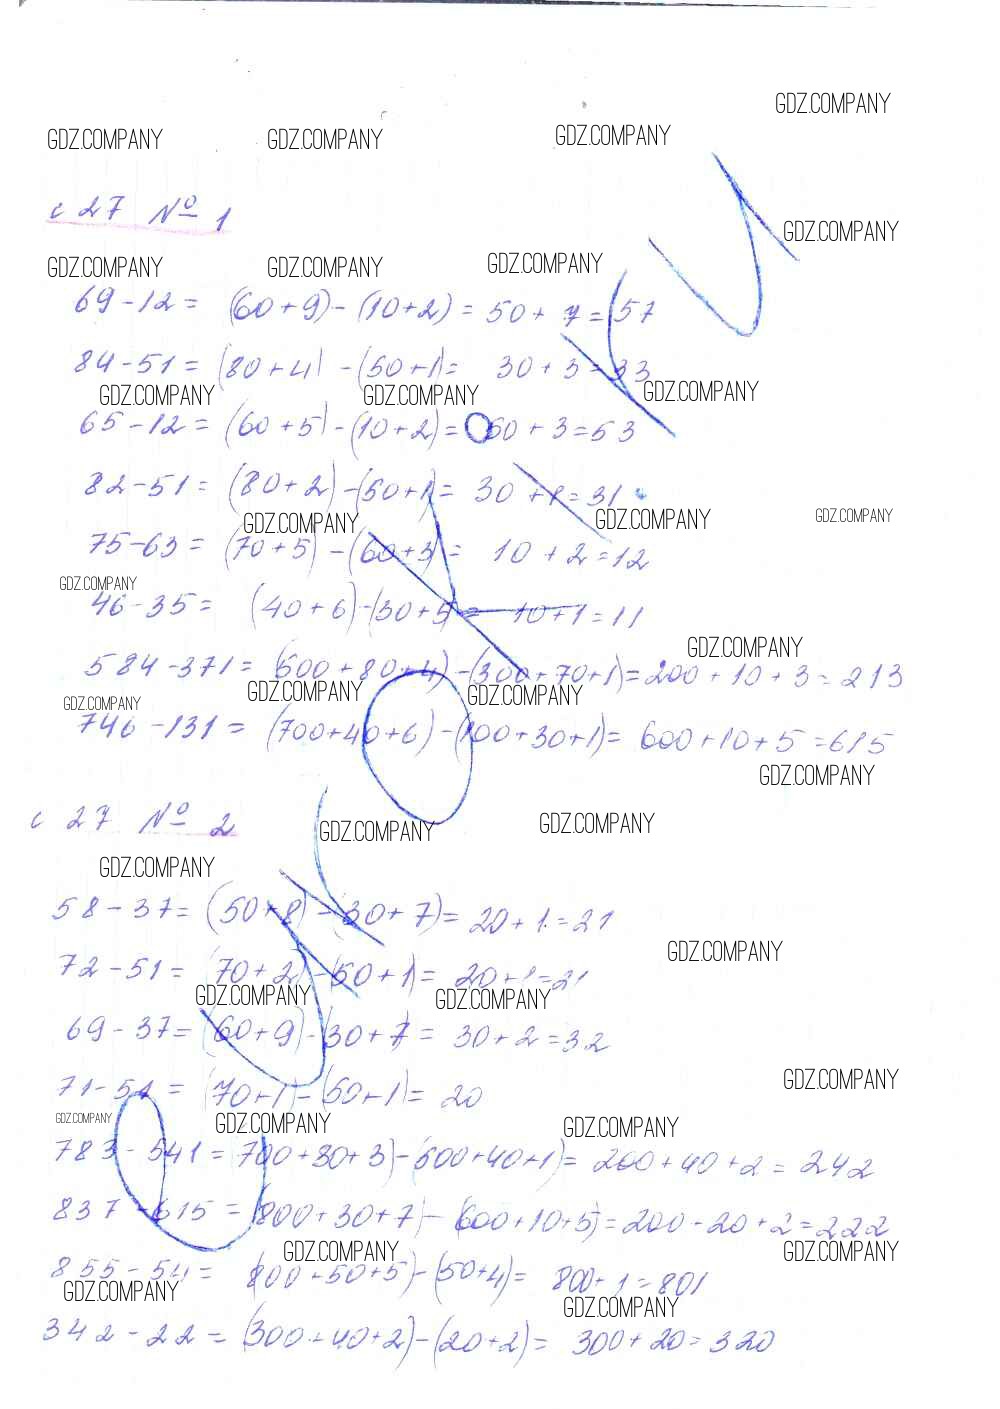 GDZ.COMPANY
GDZ.COMPANY GDZ.COMPANY GDZ.COMPANY
с 27 № 1
GDZ.COMPANY
GDZ.COMPANY GDZ.COMPANY GDZ.COMPANY
69-12= (60+9)-(10+2)= 50+7=57
84-51= (80+4)-(50+1)= 30+3=33
GDZ.COMPANY GDZ.COMPANY GDZ.COMPANY
65-12= (60+5)-(10+2)= 50+3=53
82-51= (80+2)-(50+1)= 30+1=31
GDZ.COMPANY GDZ.COMPANY GDZ.COMPANY
75-63= (70+5)-(60+3)= 10+2=12
GDZ.COMPANY
46-35= (40+6)-(30+5)= 10+1=11
GDZ.COMPANY
584-371= (500+80+4)-(300+70+1)=200+10+3=213
GDZ.COMPANY GDZ.COMPANY GDZ.COMPANY
746-131= (700+40+6)-(100+30+1)= 600+10+5=615
GDZ.COMPANY
с 27 № 2
GDZ.COMPANY GDZ.COMPANY
GDZ.COMPANY
58-37= (50+8)-(30+7)= 20+1=21
GDZ.COMPANY
72-51= (70+2)-(50+1)= 20+1=21
GDZ.COMPANY GDZ.COMPANY
69-37= (60+9)-(30+7)= 30+2=32
71-51= (70+1)-(50+1)= 20
GDZ.COMPANY
GDZ.COMPANY GDZ.COMPANY GDZ.COMPANY
783-541= 700+80+3)-(500+40+1)= 200+40+2=242
837-615= (800+30+7)-(600+10+5)=200+20+2=222
GDZ.COMPANY GDZ.COMPANY
855-54= (800+50+5)-(50+4)= 800+1=801
GDZ.COMPANY GDZ.COMPANY
342-22= (300+40+2)-(20+2)= 300+20=320